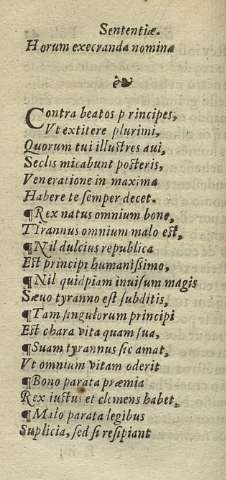 Sententiæ.
Horum execranda nomina
Contra beatos principes,
Vt extitere plurimi,
Quorum tui illustres aui,
Seclis micabunt posteris,
Veneratione in maxima
Habere te semper decet.
¶Rex natus omnium bono,
Tyrannus omnium malo est,
¶Nil dulcius republica
Est principi humanißimo,
¶Nil quidpiam inuisum magis
Sæuo tyranno est subditis,
¶Tam singulorum principi
Est chara vita quam sua,
¶Suam tyrannus sic amat,
Vt omnium vitam oderit
¶Bono parata præmia
Rex iustus et clemens habet,
¶Malo parata legibus
Suplicia, sed si resipiant